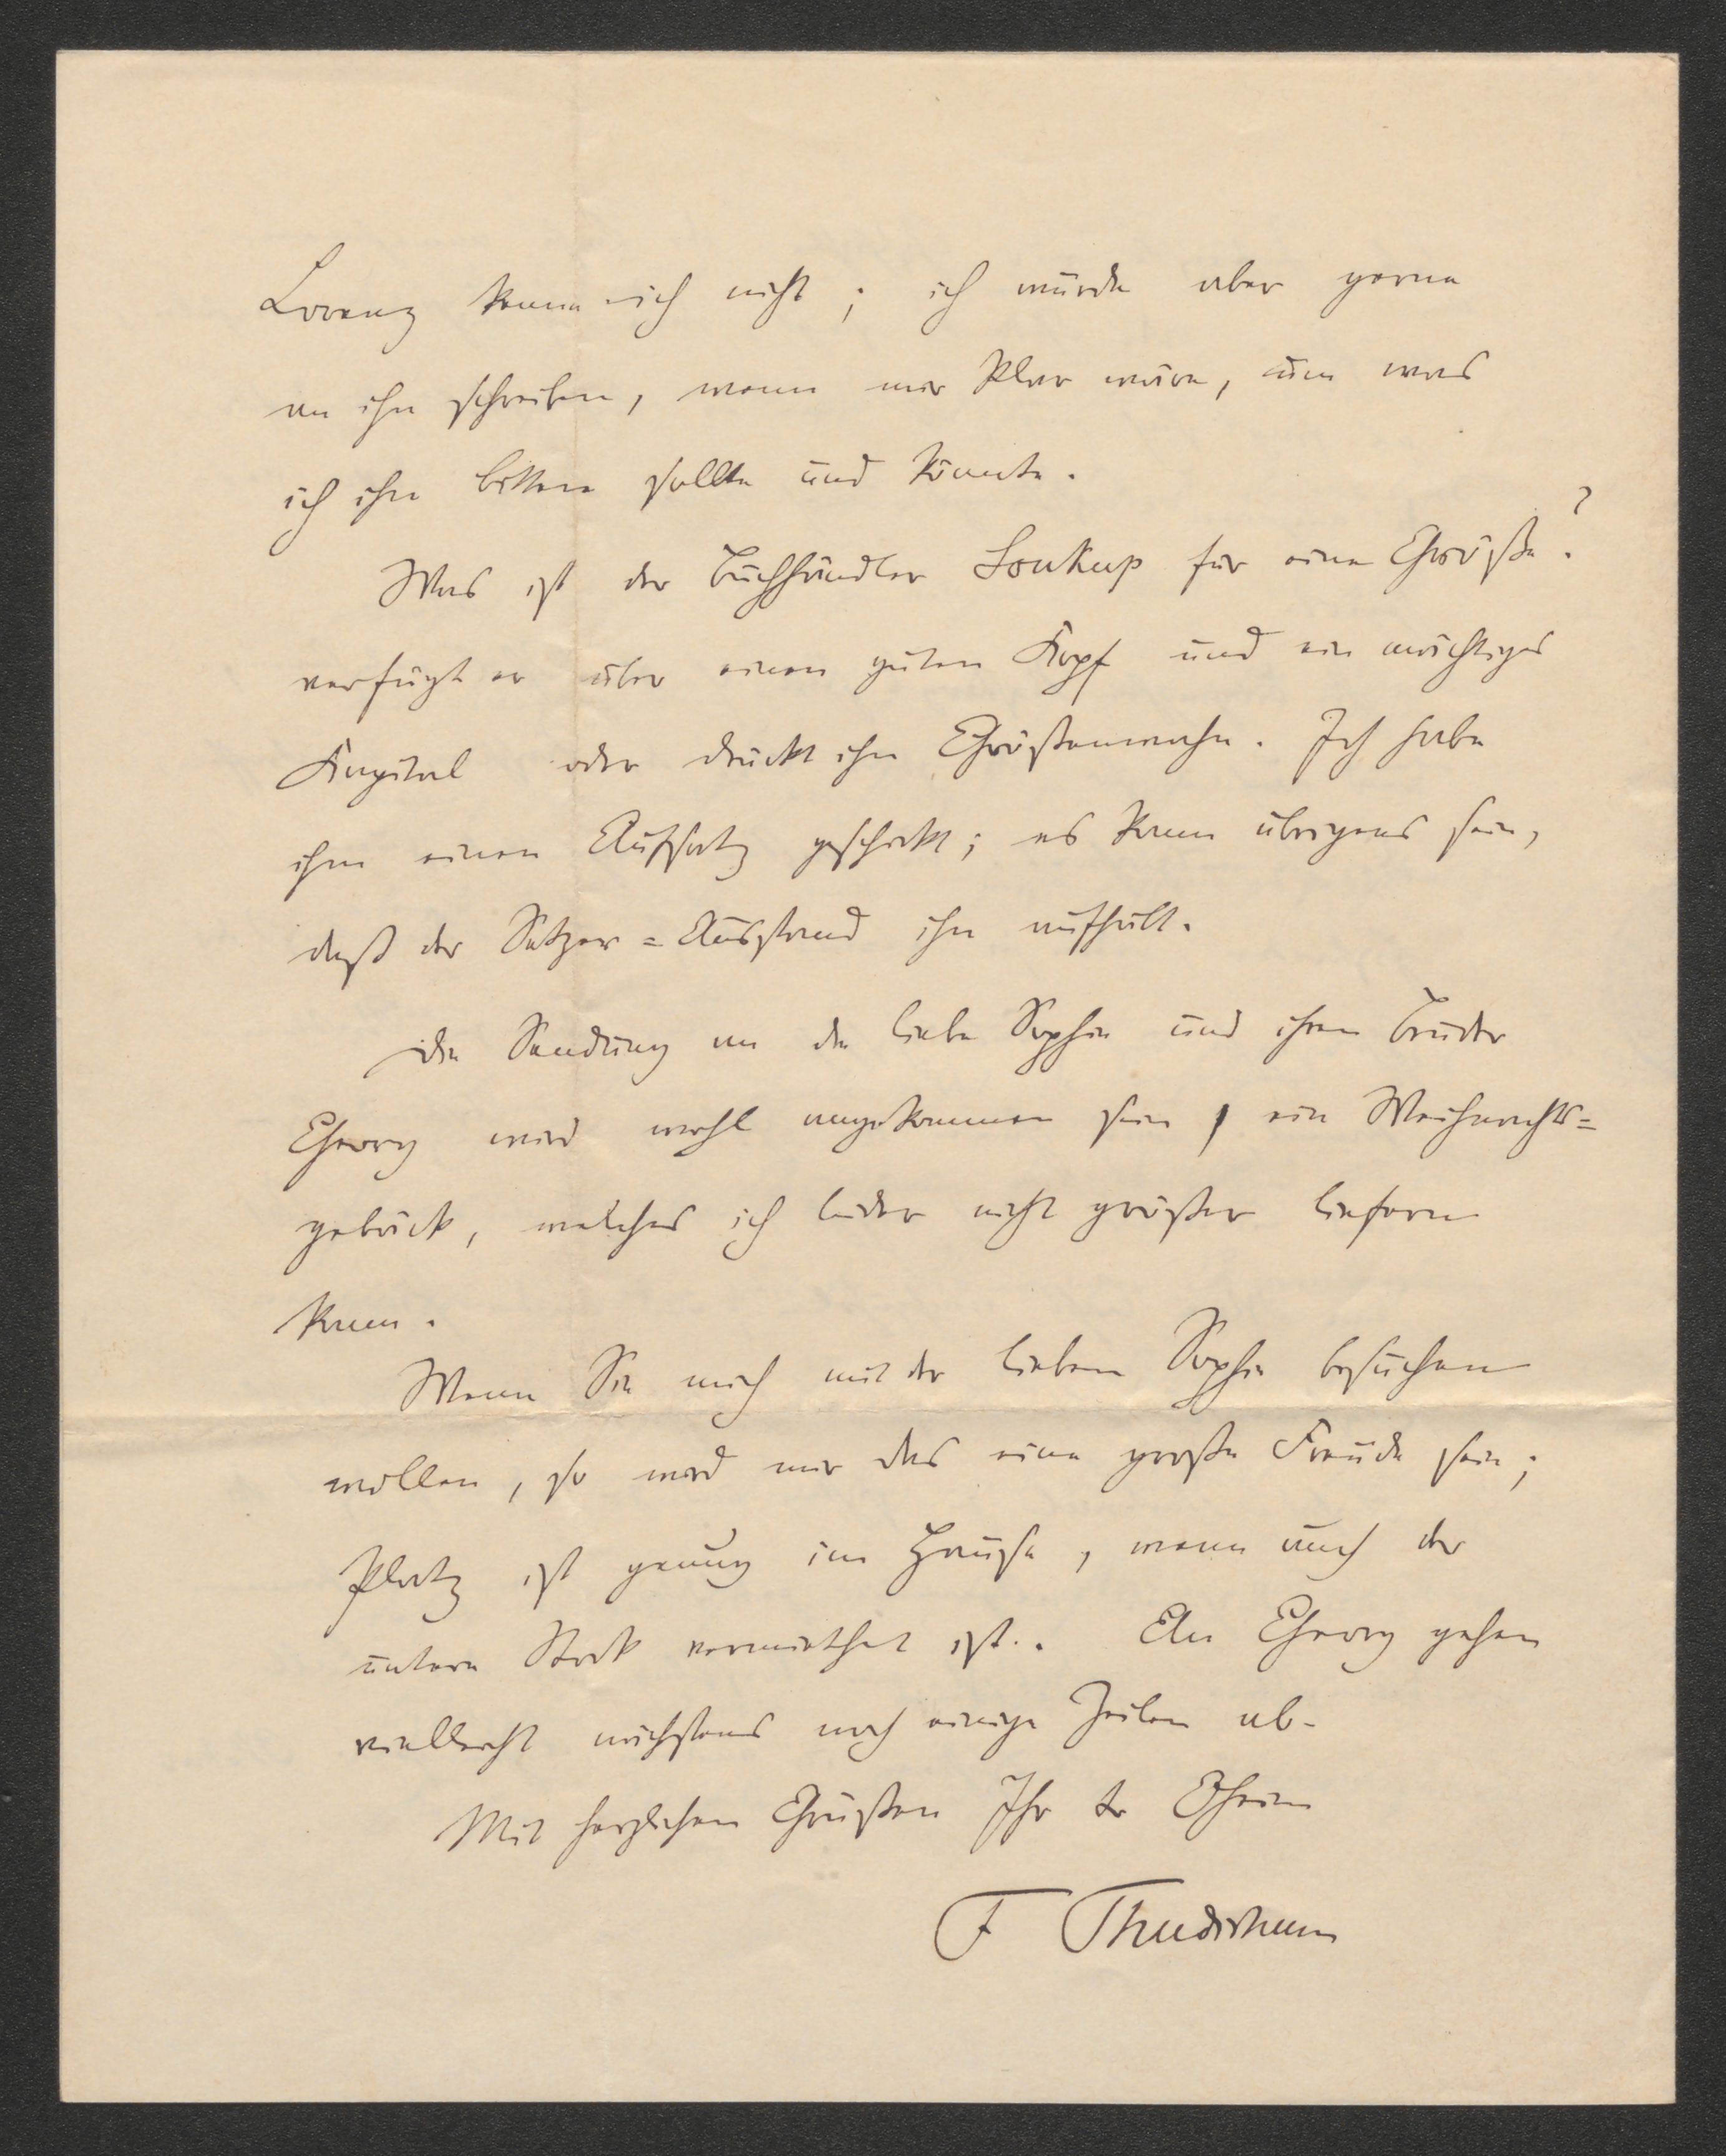 Lorenz kenne ich nicht; ich würde aber gerne
an ihn schreiben, wenn mir klar wäre, um was
ich ihn bitten sollte und könnte.
Was ist der Buchhändler Soukup für eine Größe?
verfügt er über einen guten Kopf und ein mächtiges
Kapital oder drückt ihn Größenwahn. Ich habe
ihm einen Aufsatz geschickt; es kann übrigens sein,
daß der Setzer=Ausstand ihn aufhält.
Die Sendung an die liebe Sophie und ihren Bruder
Georg wird wohl angekommen sein, ein Weihnachts=
gebäck, welches ich leider nicht größer liefern
kann.
Wenn Sie mich mit der lieben Sophie besuchen
wollen, so wird mir das eine große Freude sein;
Platz ist genug im Hause, wenn auch der
untere Stock vermiethet ist. An Georg gehen
vielleicht nächstens noch einige Zeilen ab.
Mit herzlichen Grüßen Ihr tr Oheim
F Thudichum